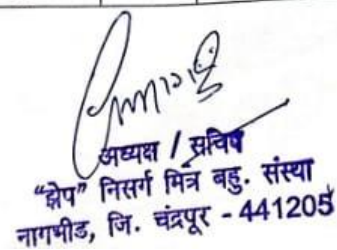 अध्यक्ष / सचिव
"झेप" निसर्ग मित्र बहु. संस्था
नागभीड, जि. चंद्रपूर - 441205